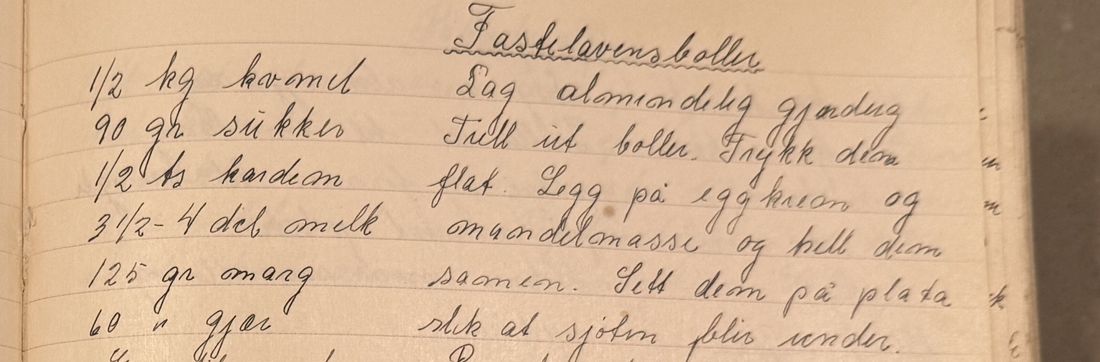 Fastelavensboller
1/2 kg kvmel Lag almindelig gjærdeig
90 gr sukker Trill ut boller. Trykk dem
1/2 ts kardem flat. Legg på eggkrem og
3 1/2 - 4 del melk mandelmasse og hell dem
125 gr marg samen. Sett dem på plata
60 " gjær slik at sjøten blir under.